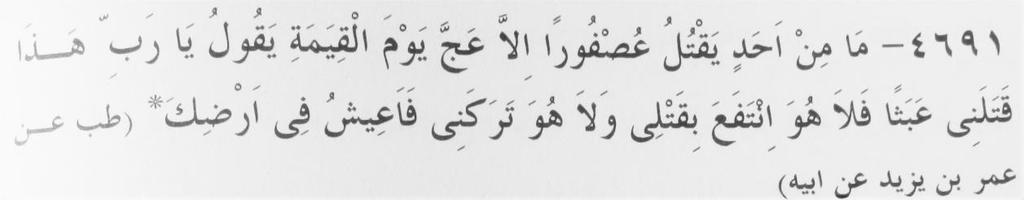 ٤٦٩١- مَا مِنْ اَحَدٍ يَقْتُلُ عُصْفُورًا اِلاَّ عَجَّ يَوْمَ الْقِيَمَةِ يَقُولُ يَا رَبِّ هَـذَا
قَتَلَنِى عَبَثًا فَلاَ هُوَ اِنْتَفَعَ بِقَتْلِى وَلاَ هُوَ تَرَكَنِى فَاَعِيشُ فِى اَرْضِكَ* (طب عـن
عمر بن يزيد عن ابيه)